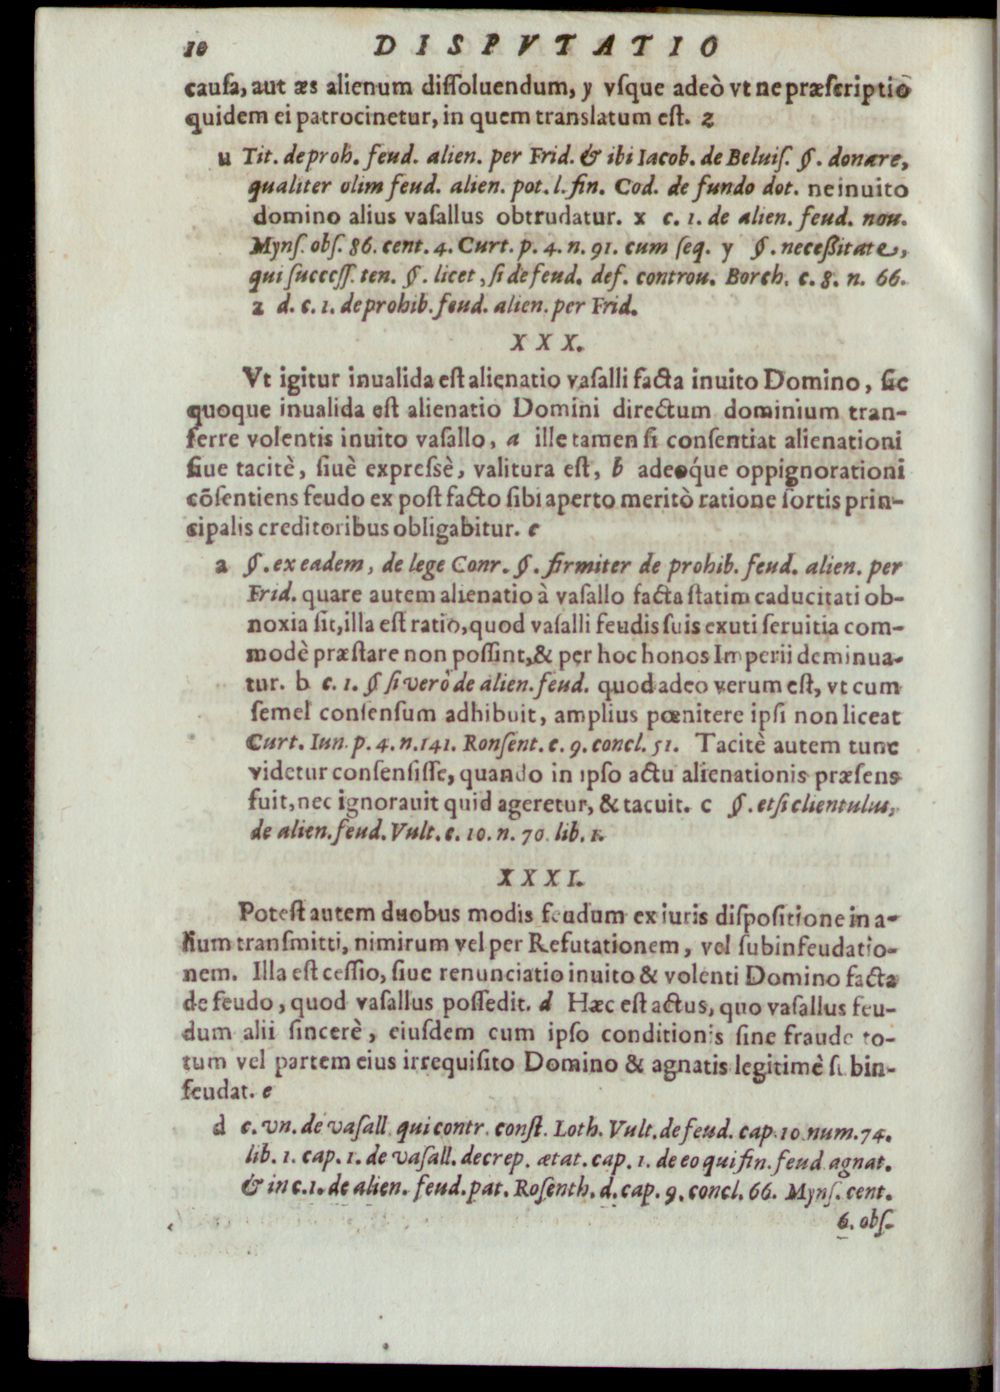 10 DISPVTATIO
cauſa, aut æs alienum diſſoluendum, y vſque adeò vt ne præſcriptiō
quidem ei patrocinetur, in quem translatum eſt. z
u Tit. de proh. feud. alien. per Frid. & ibi Iacob. de Beluiſ. §. donare,
qualiter olim feud. alien. pot. l. fin. Cod. de fundo dot. ne inuito
domino alius vaſallus obtrudatur. x c. 1. de alien. feud. nou.
Mynſ. obſ. 86. cent. 4. Curt. p. 4. n. 91. cum ſeq. y §. neceßitate,
qui ſucceſſ. ten. §. licet, ſi de feud. def. controu. Borch. c. 8. n. 66.
z d. c. 1. de prohib. feud. alien. per Frid.
XXX.
Vt igitur inualida eſt alienatio vaſalli facta inuito Domino, ſic
quoque inualida eſt alienatio Domini directum dominium tran-
ſerre volentis inuito vaſallo, a ille tamen ſi conſentiat alienationi
ſiue tacitè, ſiuè expreſsè, valitura eſt, b adeóque oppignorationi
cōſentiens feudo ex poſt facto ſibi aperto meritò ratione ſortis prin-
cipalis creditoribus obligabitur. c
a §. ex eadem, de lege Conr. §. firmiter de prohib. feud. alien. per
Frid. quare autem alienatio à vaſallo facta ſtatim caducitati ob-
noxia ſit, illa eſt ratio, quod vaſalli feudis ſuis exuti ſeruitia com-
modè præſtare non poſſint, & per hoc honos Imperii deminua-
tur. b c. 1. § ſi verò de alien. feud. quod adeo verum eſt, vt cum
ſemel conſenſum adhibuit, amplius pœnitere ipſi non liceat
Curt. Iun. p. 4. n. 141. Ronſent. c. 9. concl. 51. Tacitè autem tunc
videtur conſenſiſſe, quando in ipſo actu alienationis præſens
fuit, nec ignorauit quid ageretur, & tacuit. c §. etſi clientulus,
de alien. feud. Vult. c. 10. n. 70. lib. 1.
XXXI.
Poteſt autem duobus modis feudum ex iuris diſpoſitione in a-
lium transmitti, nimirum vel per Refutationem, vel ſubinfeudatio-
nem. Illa eſt ceſſio, ſiue renunciatio inuito & volenti Domino facta
de feudo, quod vaſallus poſſedit. d Hæc eſt actus, quo vaſallus feu-
dum alii ſincerè, eiuſdem cum ipſo conditionis ſine fraude to-
tum vel partem eius irrequiſito Domino & agnatis legitimè ſubin-
feudat. e
d c. vn. de vaſall. qui contr. conſt. Loth. Vult. de feud. cap. 10 num. 74.
lib. 1. cap. 1. de vaſall. decrep. ætat. cap. 1. de eo qui fin. feud agnat.
& in c. 1. de alien. feud. pat. Roſenth. d. cap. 9. concl. 66. Mynſ. cent.
6. obſ.